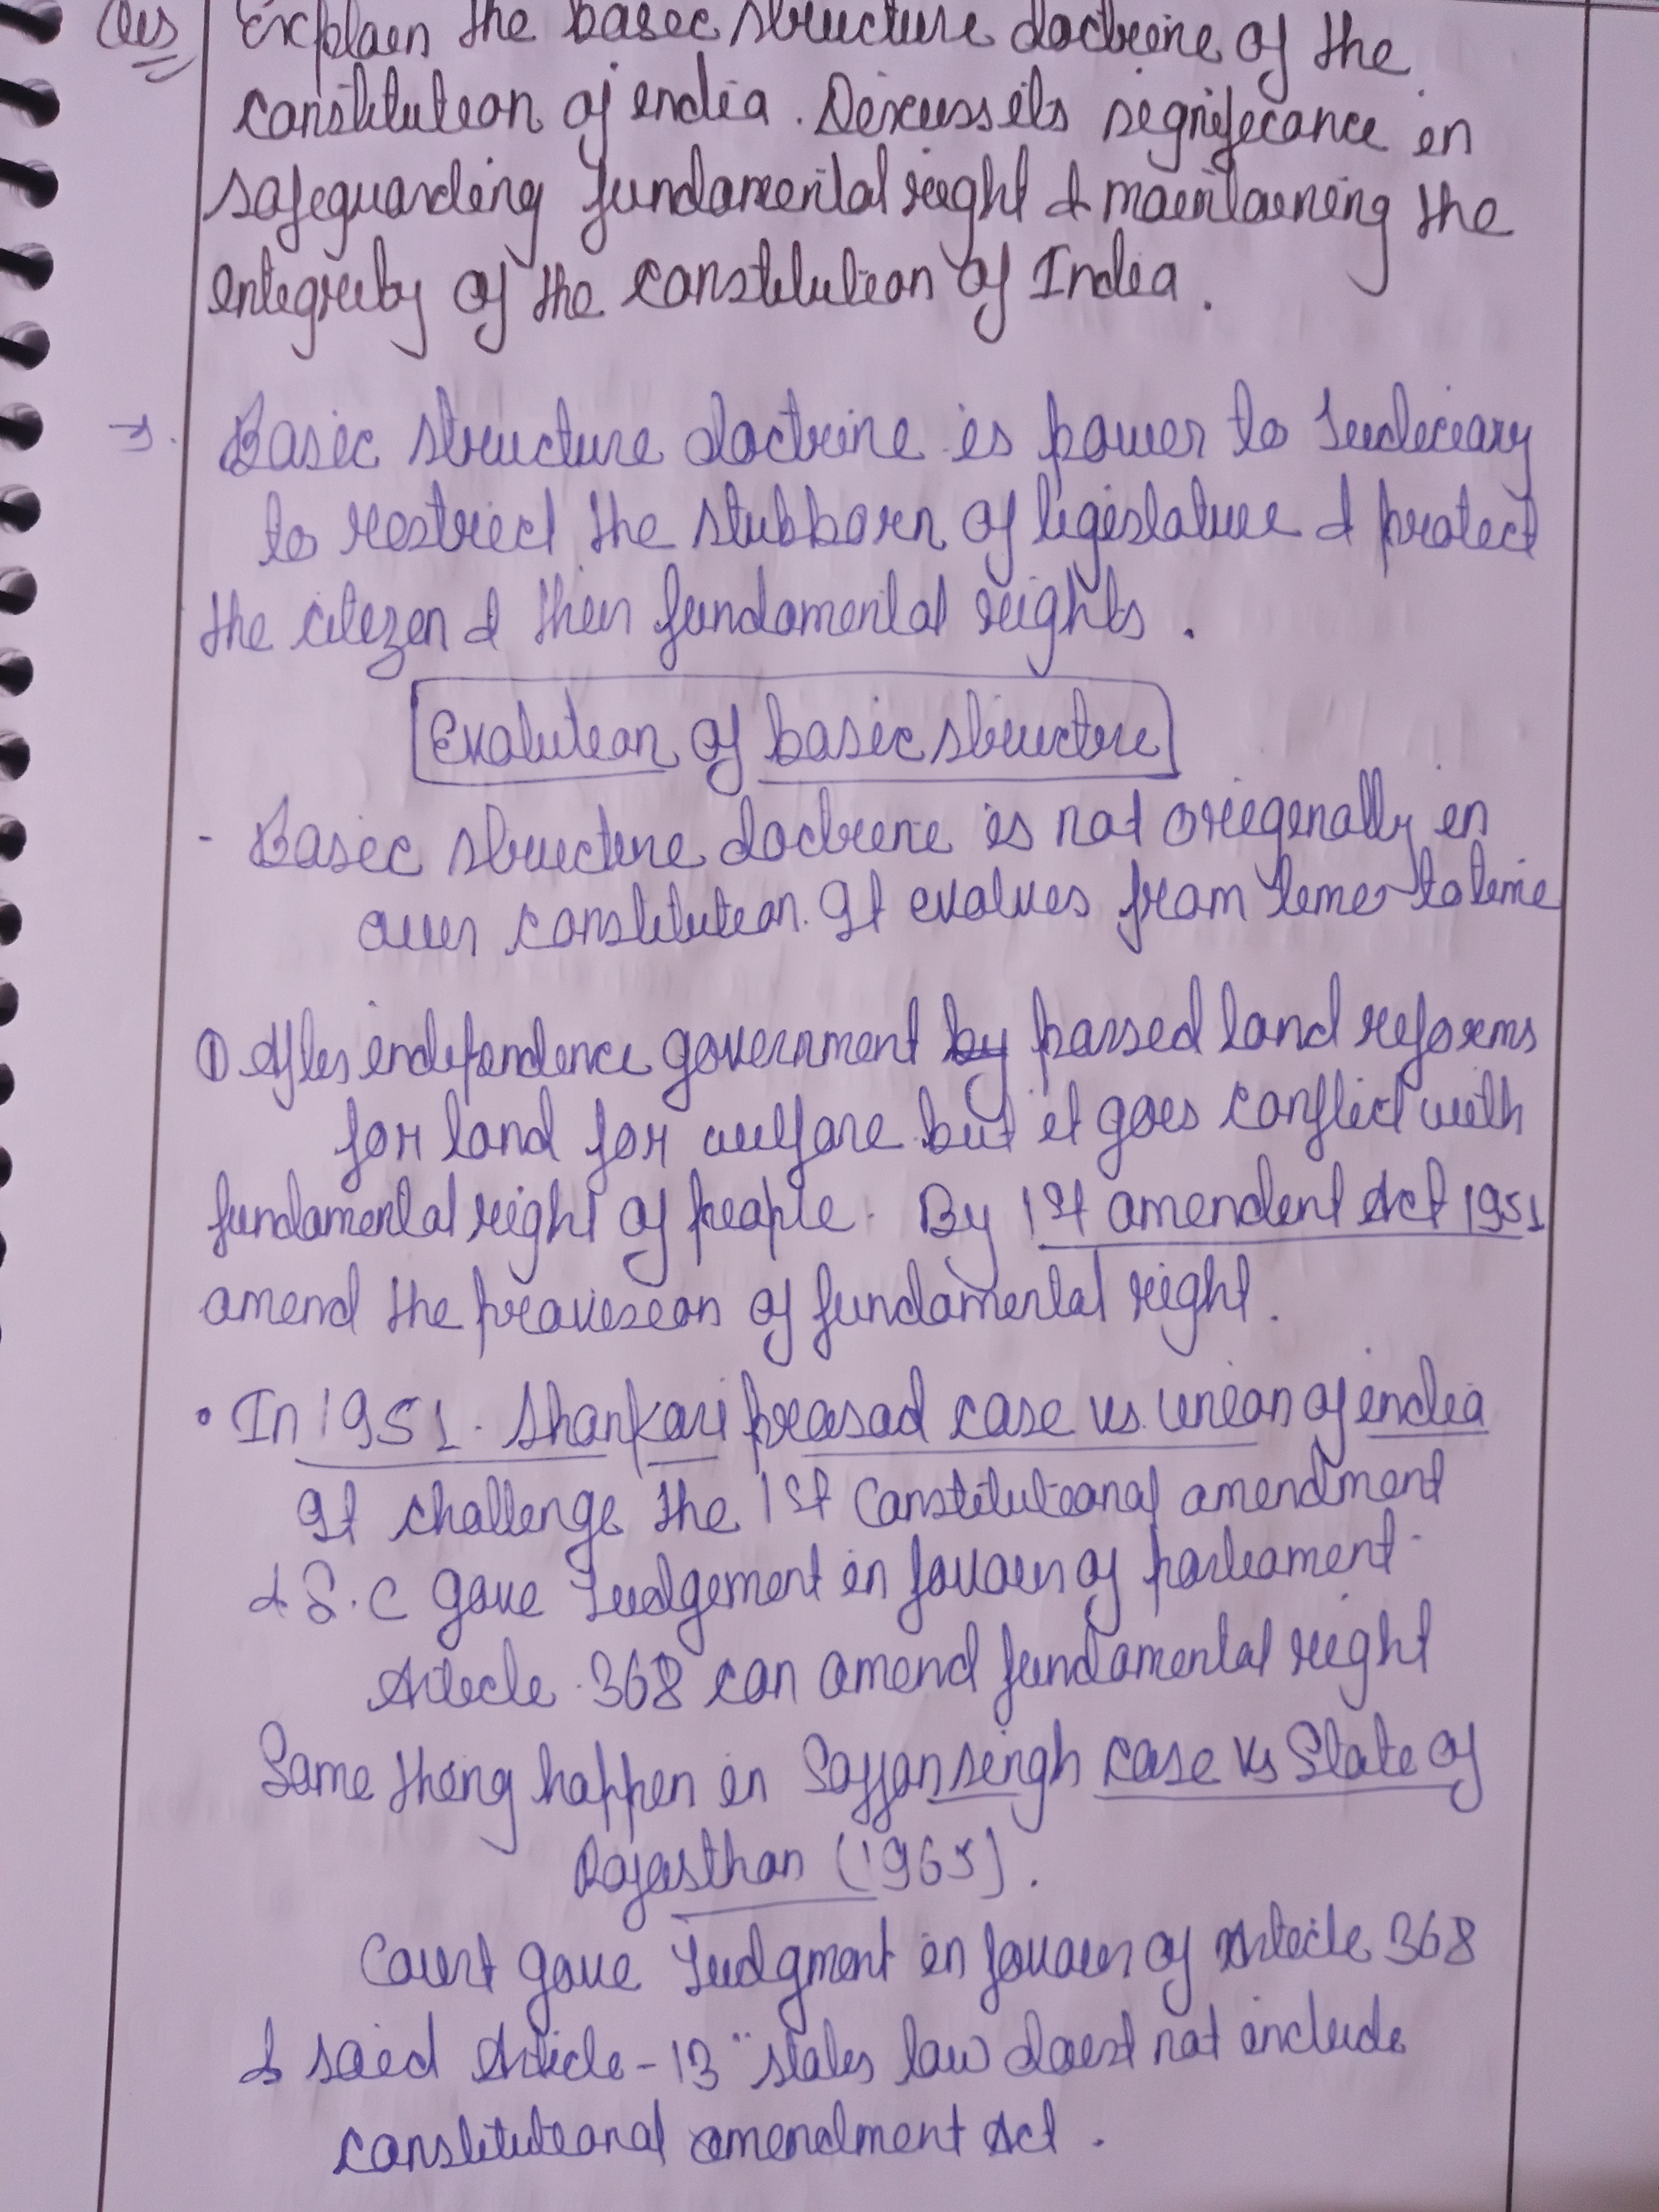 Ques Explain the basic structure doctrine of the
constitution of india. Discuss its significance in
safeguarding fundamental right & maintaining the
integrity of the constitution of India.
→. Basic structure doctrine is power to Judiciary
to restrict the stubborn of legislature & protect
the citizen & their fundamental rights.
Evolution of basic structure
- Basic structure doctrine is not originally in
our constitution. It evolves from time to time
① After independence government by passed land reforms
for land for welfare but it goes conflict with
fundamental right of people. By 1st amendent Act 1951
amend the provision of fundamental right.
• In 1951. Shankari prasad case vs. union of india
It challenge the 1st Constitutional amendment
& S.C gave Judgement in favour of parliament.
Article 368 can amend fundamental right
Same thing happen in Sajjan singh case vs State of
Rajasthan (1965).
Court gave Judgment in favour of Article 368
& said Article-13 " states law doest not include
constitutional amendment Act.